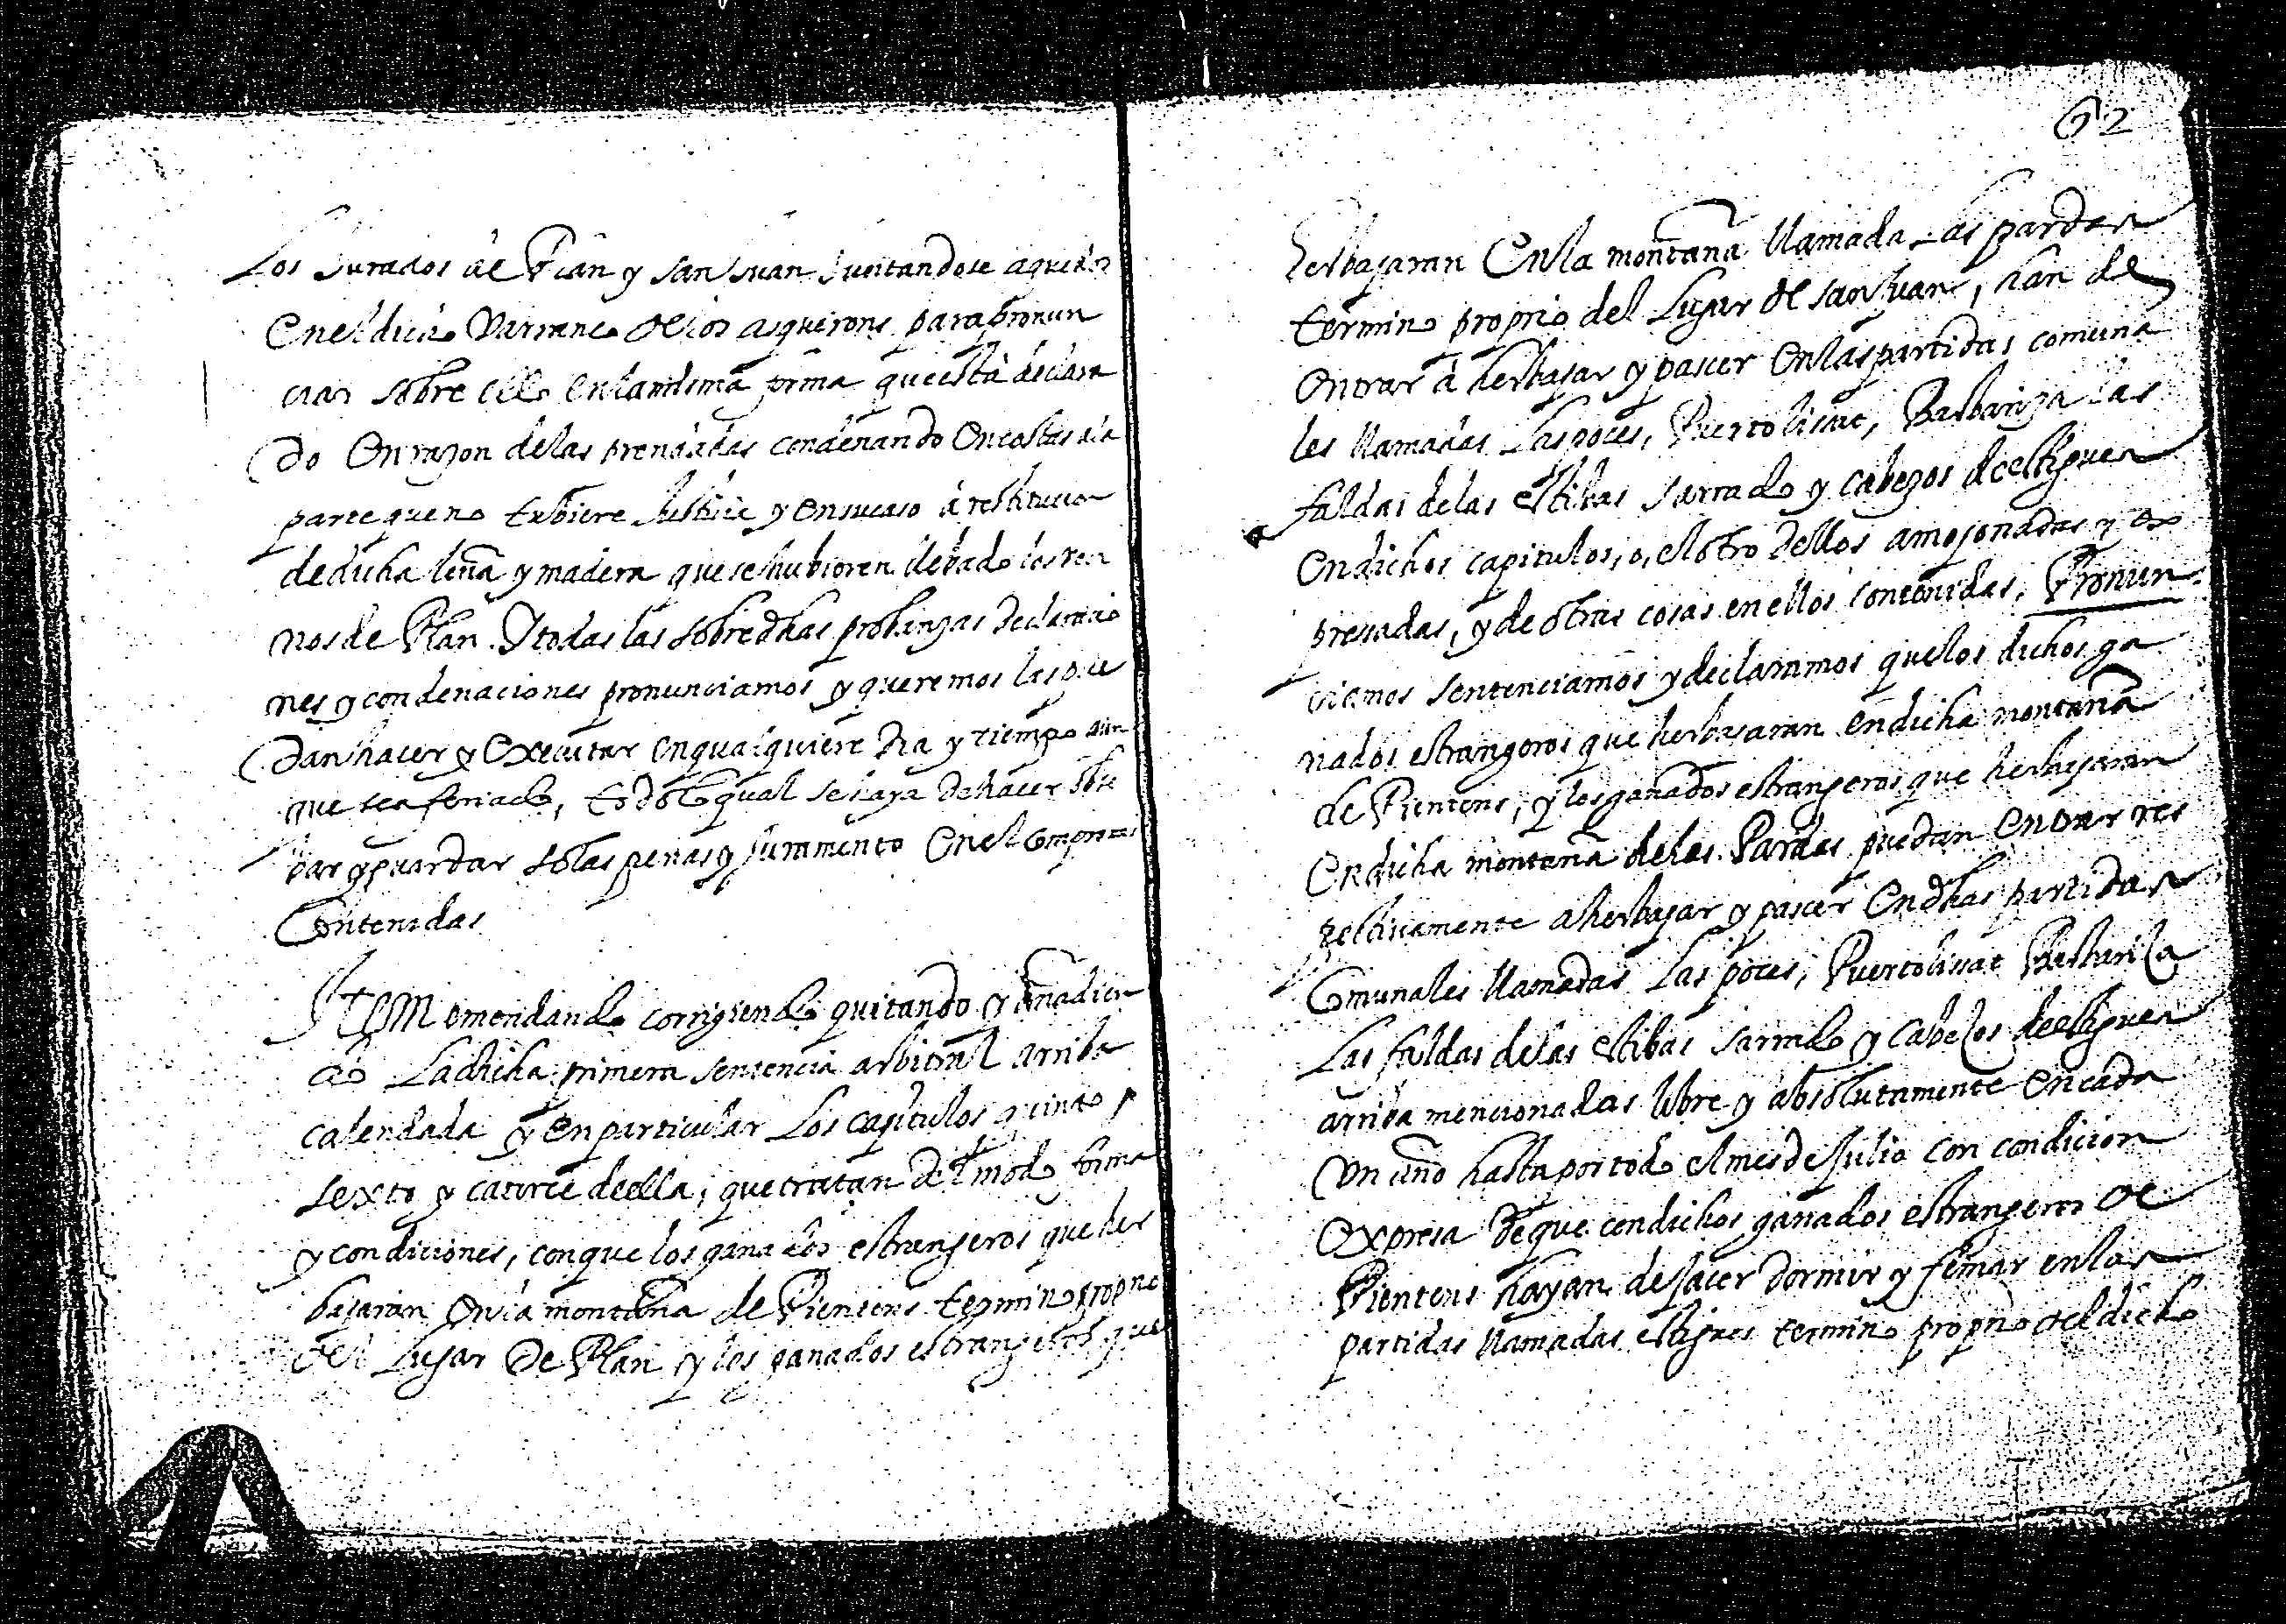 Los Jurados de Plan y San Juan Juntandose aquellos
en el dicho Varranco de los asquerons para pronun
ciar sobre ello en la misma forma que està declara
do En razon de las prendadas condenando En costas à la
parte que no tubiere Justicia y en su caso à restitucion
de dicha leña y madera que se hubieren llebado los vezi
nos de Plan. Y todas las sobredhas probanzas Declaracio
nes y condenaciones pronunciamos y queremos las pue
dan hacer y Executar en qualquiere Dia y tiempo aun
que sea feriado, todo lo qual se haya de hacer obser
bar y guardar so las penas y Juramento En el Compromis
Contenidas
Item emendando corrigiendo quitando y añadien
do La dicha primera sentencia arbitral arriba
calendada y en particular Los capitulos quinto
sexto y catorce de ella, que tratan del modo forma
y condiciones, con que los ganados estrangeros que her
bajaran en la montaña de Pientens termino proprio
del Lugar De Plan y los ganados estrangeros que
62
herbajaran En la montaña llamada Las pardas
termino proprio del Lugar de San Juan, han de
entrar à herbajar y pascer en las partidas comuna
les llamadas Las poces, Puertolisat, Barbariza las
faldas de las estibas sarrado y cabezos de estigues
en dichos capitulos, o, el otro dellos amojonadas y ex
presadas, y de otras cosas en ellos contenidas, Pronun
ciamos sentenciamos y declaramos que los dichos ga
nados estrangeros que herbajaran en dicha montaña
de Pientens, y los ganados estrangeros que herbajaran
En dicha montaña de las Pardas puedan Entrar res
pectivamente a herbajar y pascer En dhas partidas
Comunales llamadas Las poces, Puertolisat Barbariza
Las faldas de las estibas sarrado y Cabezos de estigues
arriba mencionadas libre y absolutamente en cada
Un año hasta por todo el mes de Julio con condicion
Expresa de que con dichos ganados estrangeros de
Pientens hayan de Jacer dormir y femar en las
partidas llamadas estigues termino proprio del dicho